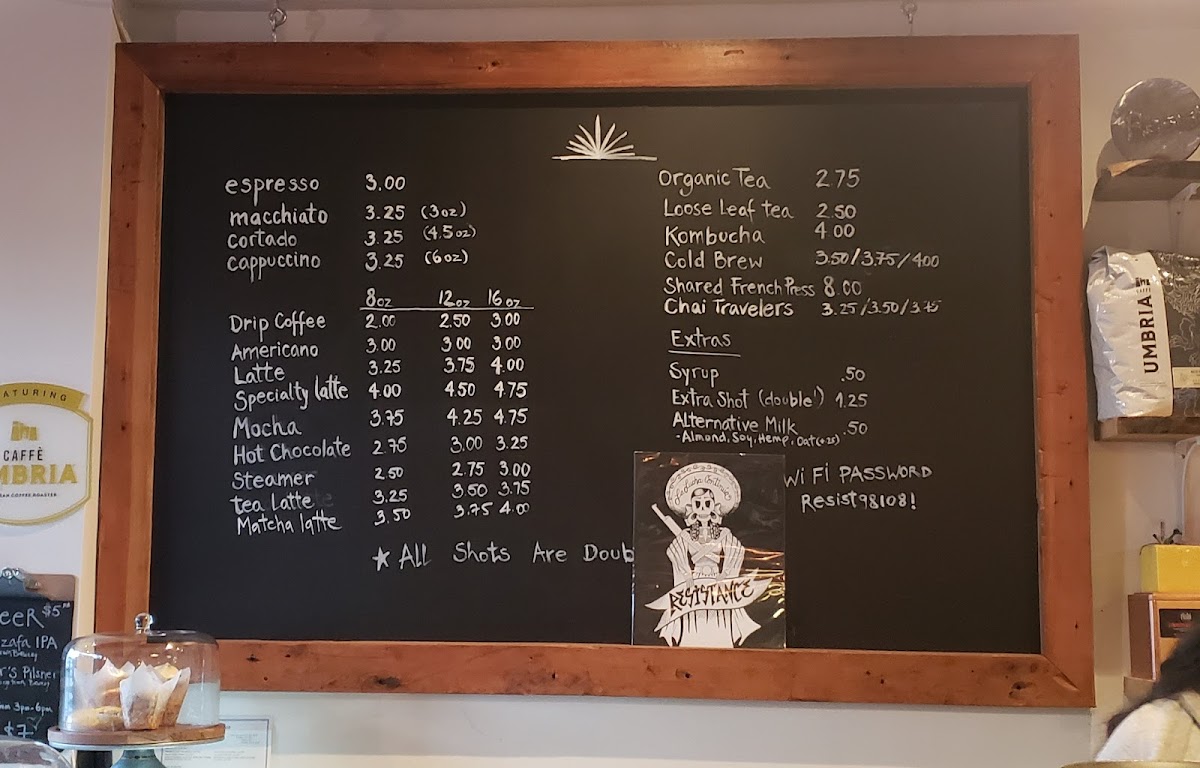 espresso 3.00
macchiato 3.25 (3oz)
cortado 3.25 (4.5oz)
cappuccino 3.25 (6oz)
8oz 12oz 16oz
Drip Coffee 2.00 2.50 3.00
Americano 3.00 3.00 3.00
Latte 3.25 3.75 4.00
Specialty latte 4.00 4.50 4.75
Mocha 3.75 4.25 4.75
Hot Chocolate 2.75 3.00 3.25
Steamer 2.50 2.75 3.00
tea Latte 3.25 3.50 3.75
Matcha latte 3.50 3.75 4.00
★ All Shots Are Doub
Organic Tea 2.75
Loose Leaf tea 2.50
Kombucha 4.00
Cold Brew 3.50/3.75/4.00
Shared French Press 8.00
Chai Travelers 3.25/3.50/3.75
Extras
Syrup .50
Extra Shot (double') 1.25
Alternative Milk .50
-Almond, Soy, Hemp, Oat(+25)
WiFi PASSWORD
Resist98108!
RESISTANCE
UMBRIA
ATURING
CAFFÈ
MBRIA
eeR $5
zafa IPA
r's Pilsner
3pm-6pm
$7